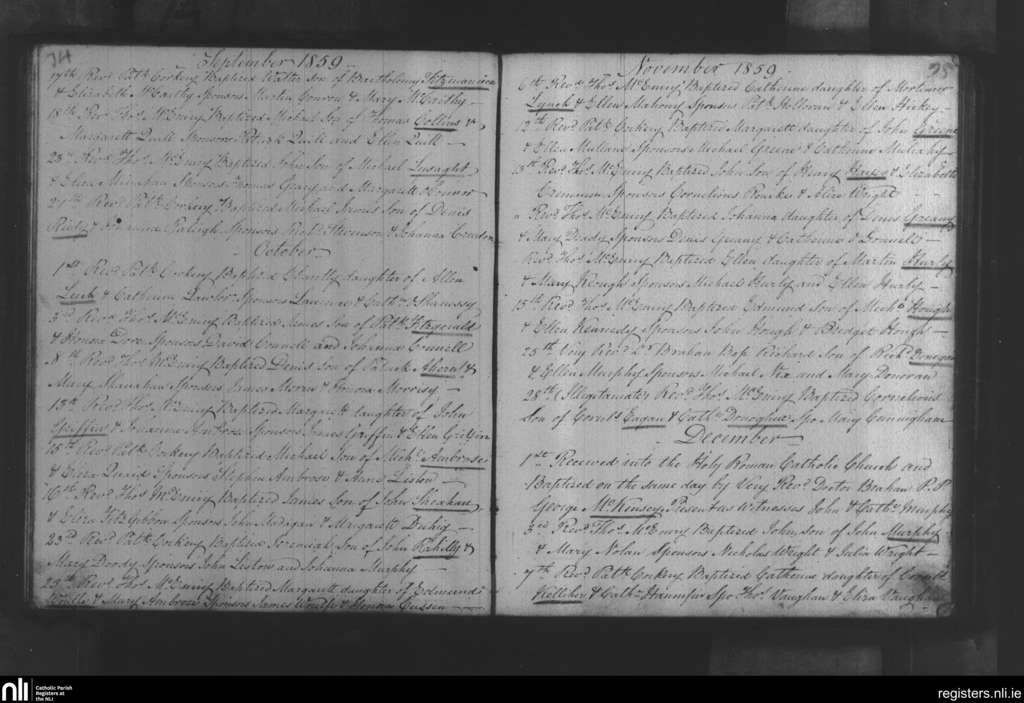 74
September 1859
17th Revd Patk Corkery Baptized Walter Son of Bartholomy Fitzmaurice
& Elizabeth McCarthy Sponsors Martin Conron & Mary McCarthy —
18th Revd Thos McEnery Baptized Michael Son of Thomas Collins &
Margarett Quill Sponsors Patrick Quill and Ellen Quill —
25th Revd Thos McEnery Baptized John Son of Michael Lysaght
& Eliza Minahan Sponsors Thomas Gary and Margarett O Connor
27th Revd Patk Corkery Baptized Michael Son of Denis
& Raleigh Sponsors & Johanna
October —
1st Revd Patk Corkery Baptized daughter of Allen
& Catherine Lawlor Sponsors Lawrence & Cathne Shaussy
3rd Revd Thos McEnery Baptized James Son of Patk Fitzgerald
& Honora Dore Sponsors David Connell and Johanna Connell
8th Revd Thos McEnery Baptized Denis Son of Patrick Ahern &
Mary Shanahan Sponsors James & Honora Morrisy —
13th Revd Thos McEnery Baptized Margarett daughter of John
Griffin & Ambrose Sponsors James Griffin & Ellen Griffin
15th Revd Patk Corkery Baptized Michael Son of Michl Ambrose
& Eliza Quaid Sponsors Stephen Ambrose & Anne Liston —
16th Revd Thos McEnery Baptized James Son of John Sheahan
& Eliza FitzGibbon Sponsors John Madigan & Margarett Duhig —
23rd Revd Patk Corkery Baptized Jeremiah Son of John Rahilly &
Mary Doody Sponsors John Liston and Johanna Murphy —
29th Revd Thos McEnery Baptized Margarett daughter of Edmund
Woulfe & Mary Ambrose Sponsors James Woulfe & Honora Cussen —
75
November 1859
6th Revd Thos McEnery Baptized Catherine daughter of Mortimer
Lynch & Ellen Mahony Sponsors Patk Holloran & Ellen Hickey —
12th Revd Patk Corkery Baptized Margarett daughter of John Greene
& Ellen Mullane Sponsors Michael Greene & Catherine Mulcahy —
13th Revd Thos McEnery Baptized John Son of Henry Hayes & Elizabeth
Cremmin Sponsors Cornelious Rourke & Alice Wright
" Revd Thos McEnery Baptized Johanna daughter of Denis Greany
& Mary Deady Sponsors Denis Greany & Catherine O Donnell —
Revd Thos McEnery Baptized Ellen daughter of Martin Hurly
& Mary Keough Sponsors Michael Hurly and Ellen Hurly —
15th Revd Thos McEnery Baptized Edmund Son of Michl Hough
& Ellen Kennedy Sponsors John Hough & Bridget Hough —
25th Very Revd Dr Brahan Bap Richard Son of Richd Donegan
& Ellen Murphy Sponsors Michael Nix and Mary Donovan
28th (Illegitamate) Revd Thos McEnery Baptized Cornelious
Son of Cornls Eagan & Cathne Donoghue Spo Mary Cuningham
December —
1st Received into the Holy Roman Catholic Church and
Baptized on the same day by Very Revd Doctor Brahan P.P
George McKinsey Present as Witnesses John & Cathne Murphy
3rd Revd Thos McEnery Baptized John son of John Murphy
& Mary Nolan Sponsors Nicholas Wright & Julia Wright —
7th Revd Patk Corkery Baptized Catherine daughter of Cornls
Kelliher & Cathne Hannifin Spo Thos Vaughan & Eliza Vaughan
nli
Catholic Parish
Registers at
the NLI
registers.nli.ie